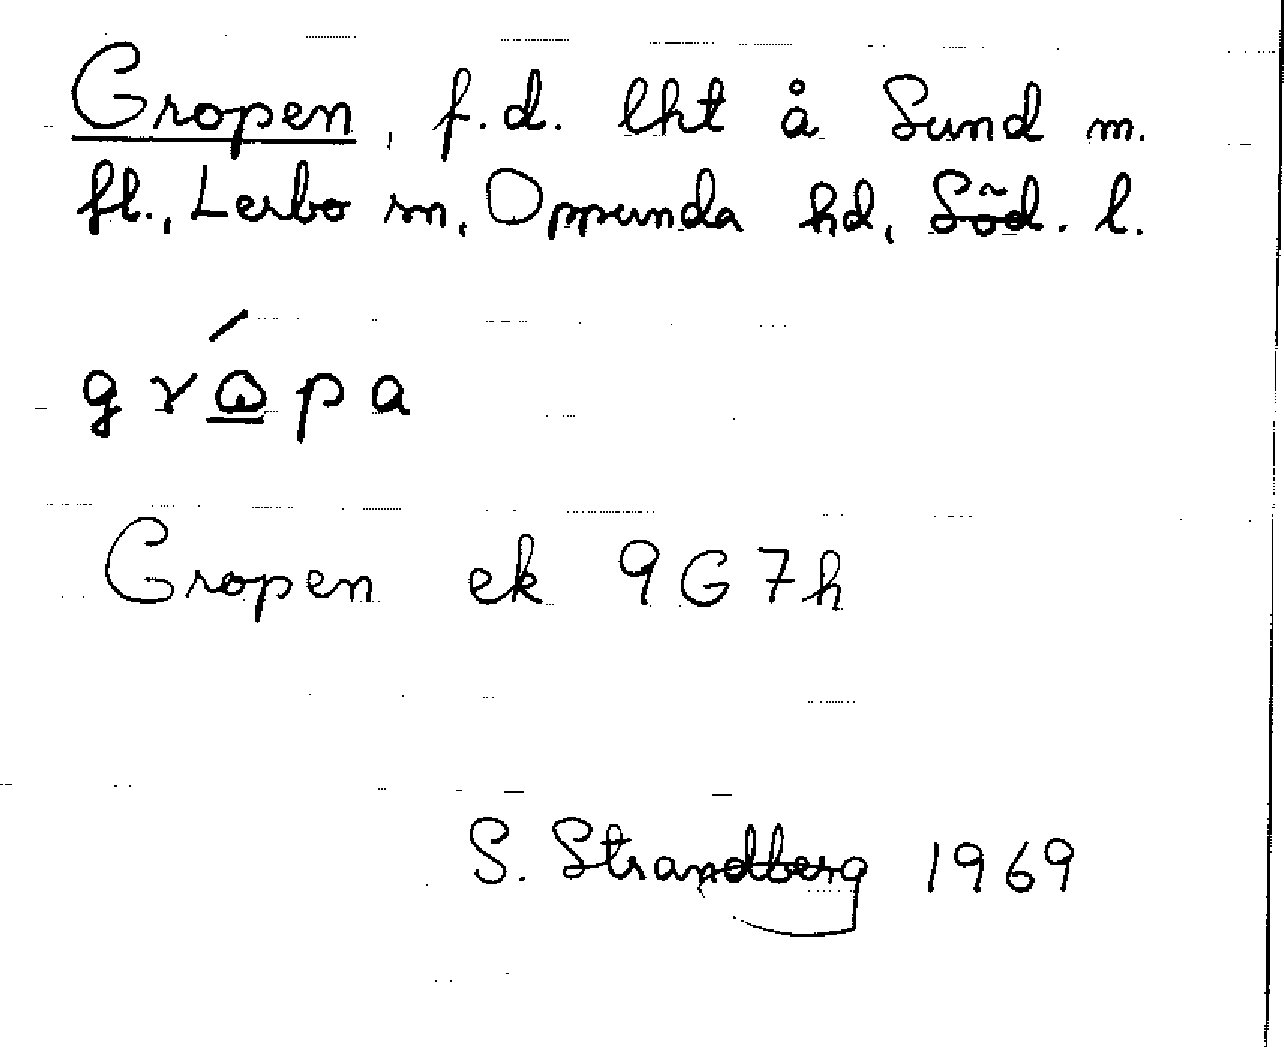 Gropen, f.d. lht å Sund m.
fl., Lerbo sn, Oppunda hd, Söd. l.
grⱺ́pa
Gropen ek 9G7h
S. Strandberg 1969